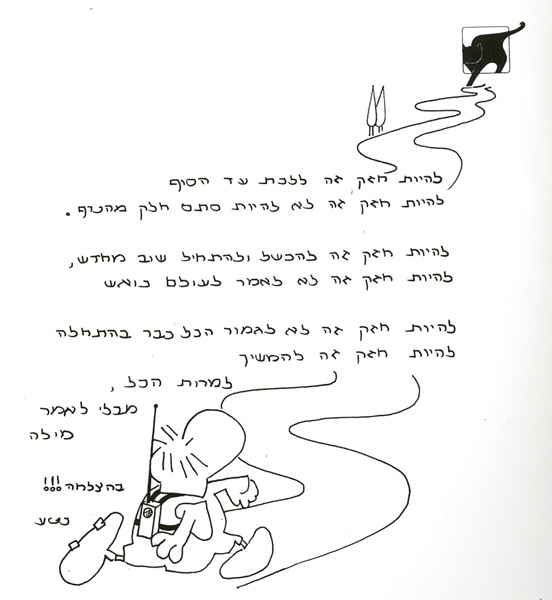 להיות חזק זה ללכת עד הסוף
להיות חזק זה לא להיות סתם חלק מהנוף.
להיות חזק זה להכשל ולהתחיל שוב מחדש,
להיות חזק זה לא לאמר לעולם נואש
להיות חזק זה לא לגמור הכל כבר בהתחלה
להיות חזק זה להמשיך
למרות הכל,
מבלי לאמר
מילה
בהצלחה!!!
נטע